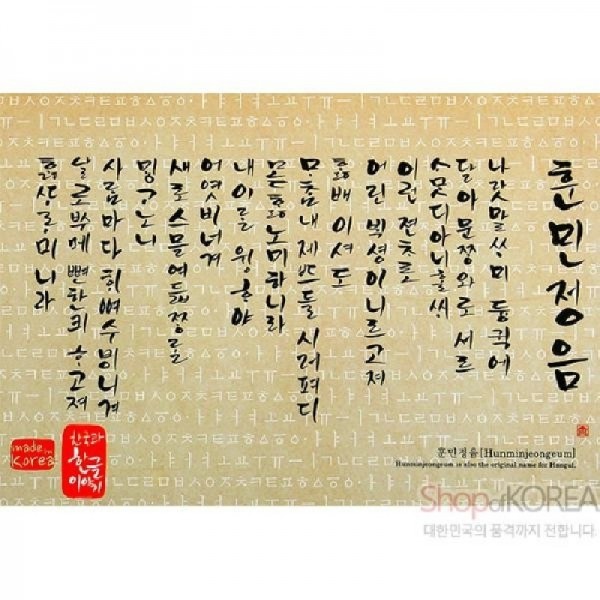 훈민정음
나랏말ᄊᆞ미 듕귁에
달아 문ᄍᆞᆼ와로 서르
ᄉᆞᄆᆞᆺ디아니ᄒᆞᆯᄊᆡ
이런 젼ᄎᆞ로
어린 ᄇᆡᆨ셩이니르고져
ᄒᆞᇙ배 이셔도
ᄆᆞᄎᆞᆷ내제ᄠᅳ들 시러펴디
몯ᄒᆞᇙ노미하니라
내이ᄅᆞᆯ 윙ᄒᆞ야
어엿비너겨
새로스믈여듧ᄍᆞᆼᄅᆞᆯ
ᄆᆡᇰᄀᆞ노니
사ᄅᆞᆷ마다ᄒᆡᅇᅧ수ᄫᅵ니겨
날로ᄡᅮ메 뼌한킈 ᄒᆞ고져
ᄒᆞᇙᄯᆞᄅᆞ미니라
made in
Korea
한국과
한글
이야기
훈민정음[Hunminjeongeum]
Hunminjeongeum is also the original name for Hangul.
Shop of KOREA
대한민국의 품격까지 전합니다.